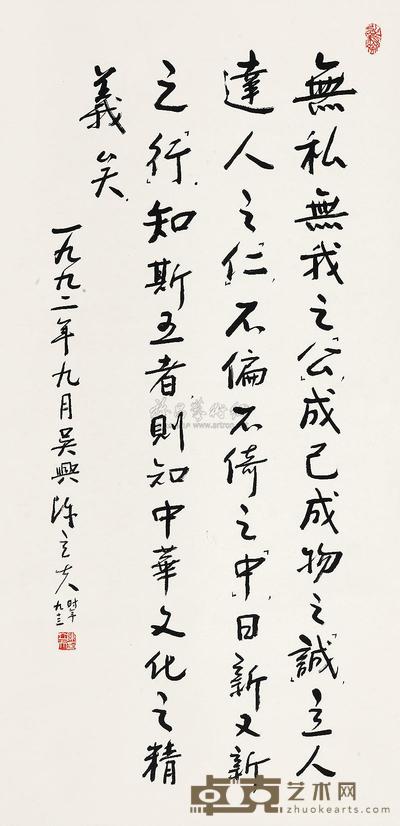 無私無我之「公」，成己成物之「誠」，立人
達人之「仁」，不偏不倚之「中」，日新又新
之「行」，知斯五者，則知中華文化之精
義矣。
一九九二年九月吳興陳立夫時年九三
卓克艺术网
zhuokearts.com